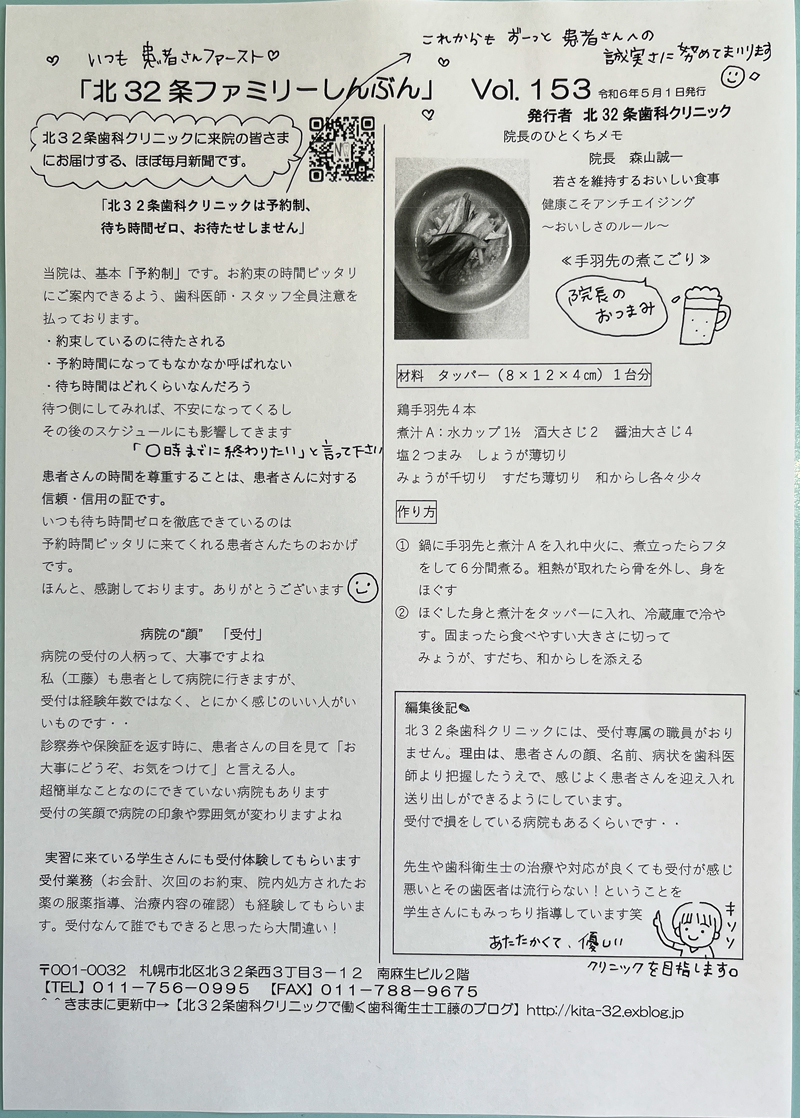 いつも 患者さんファースト♡
これからも ずーっと 患者さんへの
誠実さに努めてまいります
「北32条ファミリーしんぶん」 Vol. 153 令和6年5月1日発行
発行者 北32条歯科クリニック
北32条歯科クリニックに来院の皆さま
にお届けする、ほぼ毎月新聞です。
「北32条歯科クリニックは予約制、
待ち時間ゼロ、お待たせしません」
当院は、基本「予約制」です。お約束の時間ピッタリ
にご案内できるよう、歯科医師・スタッフ全員注意を
払っております。
・約束しているのに待たされる
・予約時間になってもなかなか呼ばれない
・待ち時間はどれくらいなんだろう
待つ側にしてみれば、不安になってくるし
その後のスケジュールにも影響してきます
「〇時までに終わりたい」と言って下さい
患者さんの時間を尊重することは、患者さんに対する
信頼・信用の証です。
いつも待ち時間ゼロを徹底できているのは
予約時間ピッタリに来てくれる患者さんたちのおかげ
です。
ほんと、感謝しております。ありがとうございます
病院の“顔” 「受付」
病院の受付の人柄って、大事ですよね
私（工藤）も患者として病院に行きますが、
受付は経験年数ではなく、とにかく感じのいい人がい
いものです・・
診察券や保険証を返す時に、患者さんの目を見て「お
大事にどうぞ、お気をつけて」と言える人。
超簡単なことなのにできていない病院もあります
受付の笑顔で病院の印象や雰囲気が変わりますよね
実習に来ている学生さんにも受付体験してもらいます
受付業務（お会計、次回のお約束、院内処方されたお
薬の服薬指導、治療内容の確認）も経験してもらいま
す。受付なんて誰でもできると思ったら大間違い！
院長のひとくちメモ
院長 森山誠一
若さを維持するおいしい食事
健康こそアンチエイジング
～おいしさのルール～
≪手羽先の煮こごり≫
院長の
おつまみ
材料 タッパー（8×12×4㎝）1台分
鶏手羽先4本
煮汁A：水カップ1½ 酒大さじ2 醤油大さじ4
塩2つまみ しょうが薄切り
みょうが千切り すだち薄切り 和からし各々少々
作り方
① 鍋に手羽先と煮汁Aを入れ中火に、煮立ったらフタ
をして6分間煮る。粗熱が取れたら骨を外し、身を
ほぐす
② ほぐした身と煮汁をタッパーに入れ、冷蔵庫で冷や
す。固まったら食べやすい大きさに切って
みょうが、すだち、和からしを添える
編集後記✎
北32条歯科クリニックには、受付専属の職員がおり
ません。理由は、患者さんの顔、名前、病状を歯科医
師より把握したうえで、感じよく患者さんを迎え入れ
送り出しができるようにしています。
受付で損をしている病院もあるくらいです・・
先生や歯科衛生士の治療や対応が良くても受付が感じ
悪いとその歯医者は流行らない！ということを
学生さんにもみっちり指導しています笑
あたたかくて、優しい
クリニックを目指します。
〒001-0032 札幌市北区北32条西3丁目3－12 南麻生ビル2階
【TEL】011－756－0995 【FAX】011－788－9675
＾＾きままに更新中→【北32条歯科クリニックで働く歯科衛生士工藤のブログ】http://kita-32.exblog.jp